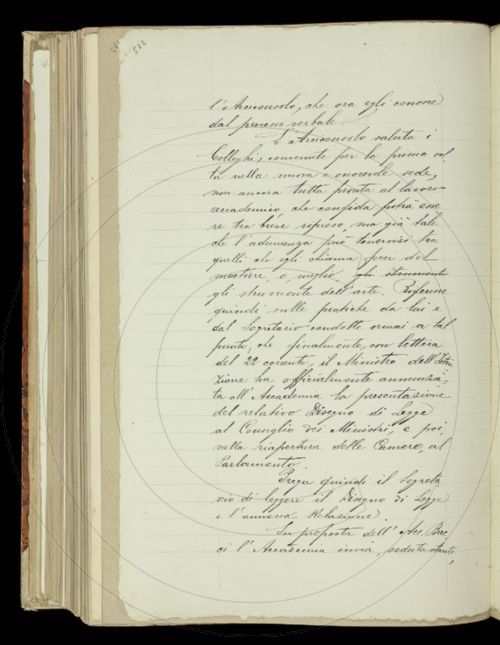 512
l'Arciconsolo, che ora egli conosce
dal processo verbale.
L'Arciconsolo saluta i
Colleghi, convenuti per la prima vol
ta nella nuova e onorevole sede,
non ancora tutta pronta al lavoro
accademico che confida potrà esse
re tra breve ripreso, ma già tale
che l'adunanza può tenervisi tra
quelli che egli chiama
mestiere, o, meglio,
gli strumenti dell'arte. Riferisce
quindi sulle pratiche da lui e
dal Segretario condotte ormai a tal
punto, che finalmente, con lettera
del 22 corrente, il Ministro dell'Istru
zione ha officialmente annunzia
ta all'Accademia la presentazione
del relativo Disegno di Legge
al Consiglio dei Ministri, e poi
nella riapertura delle Camere, al
Parlamento.
Prega quindi il Segreta
rio di leggere il Disegno di Legge
e l'annessa Relazione.
Su proposta dell'Acc. Bac
ci l'Accademia invia, seduta stante,